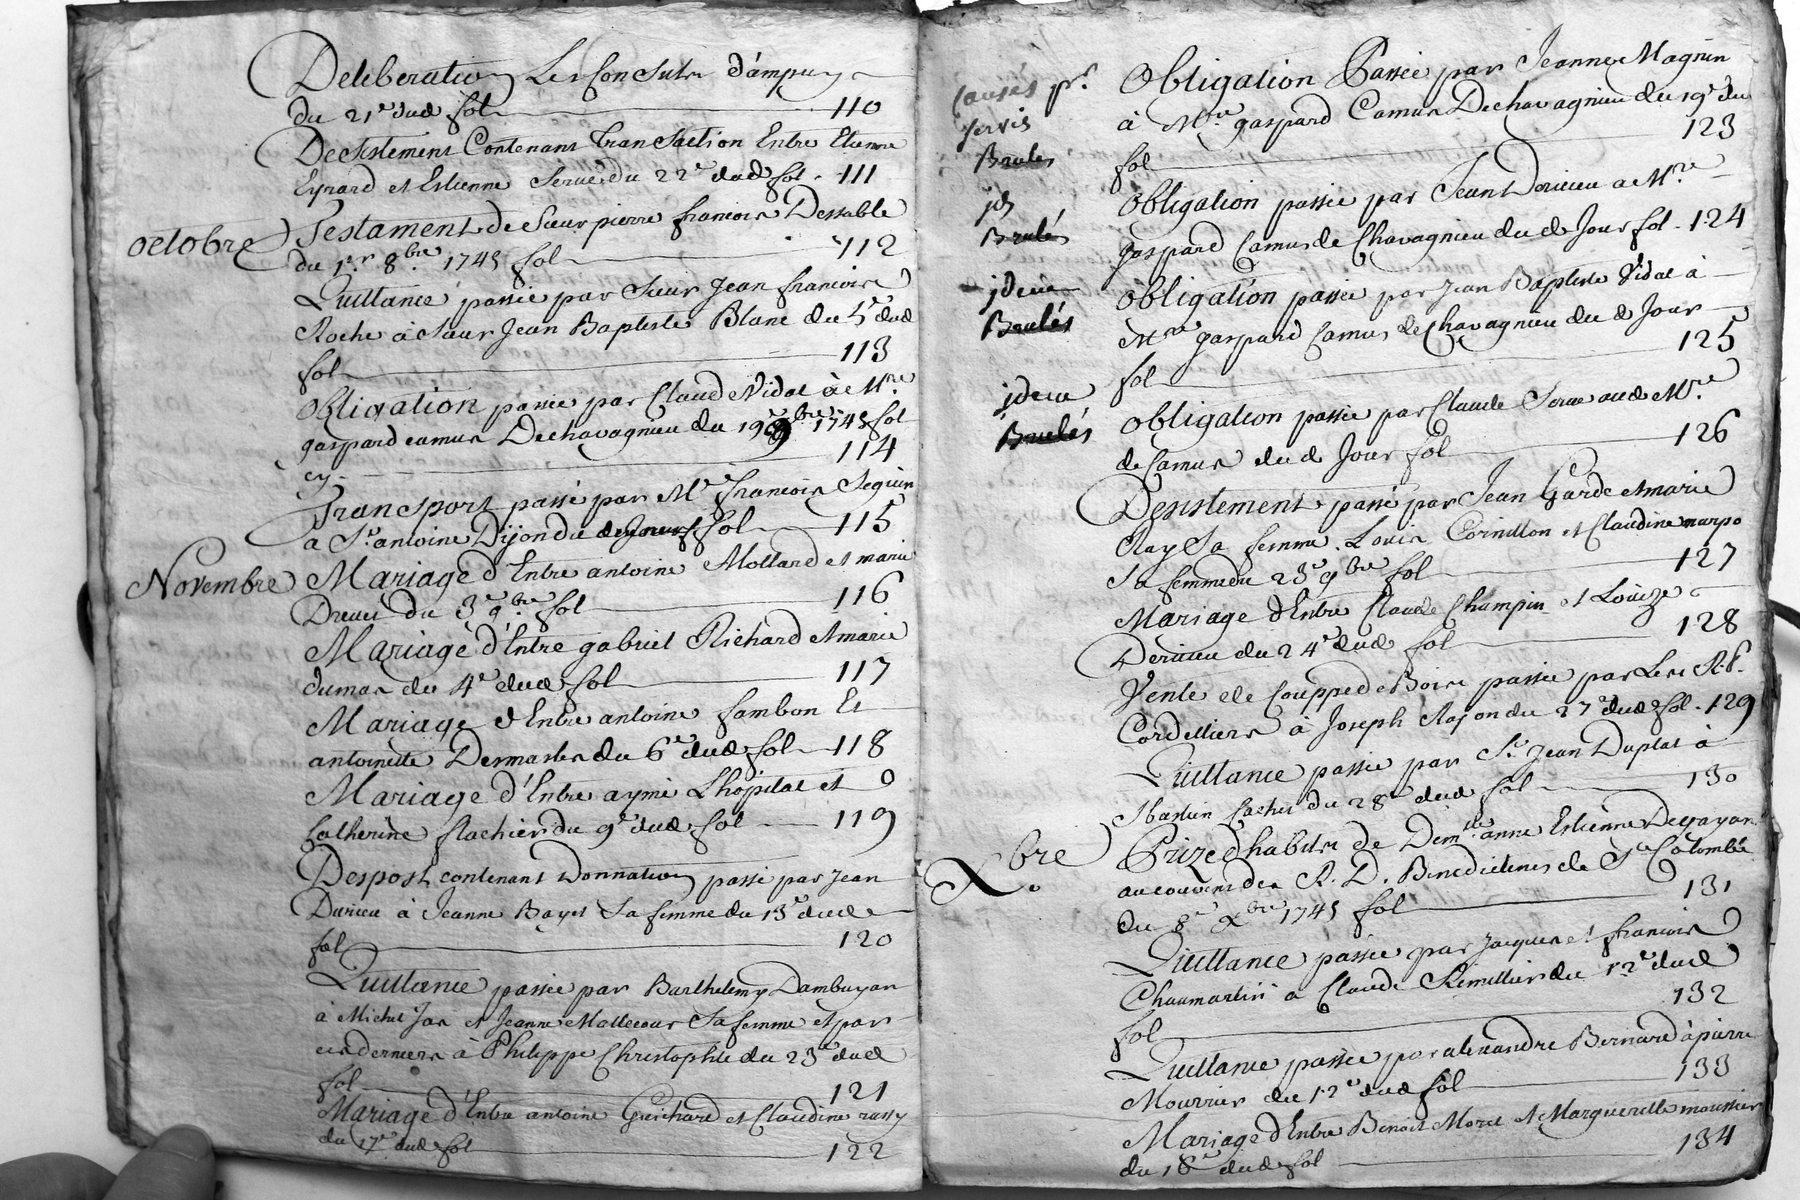 Deliberation Les Consuls d'ampuy
du 21e dud fol 110
Desistement Contenant transaction Entre Etienne
Eynard et Estienne Serve du 22e dud fol 111
octobre
Testament de Sieur pierre francois Dessable
du 1er 8bre 1745 fol 112
Quittance passée par Sieur Jean francois
Roche à Sieur Jean Baptiste Blanc du 5e dud
fol 113
Obligation passée par Claude Vidal à Mre
gaspard camus Dechavagnieu du 19e 9bre 1745 fol
cy 114
Transport passé par Me francois Seguin
a Sr antoine Dijon du fol 115
Novembre
Mariage d'Entre antoine Mollard et marie
Drevet du 3e 9bre fol 116
Mariage d'Entre gabriel Richard et marie
dumas du 4e dud fol 117
Mariage d'Entre antoine Jambon Et
antoinette Desmartes du 6e dud fol 118
Mariage d'Entre aymé Lhopital et
Catherine flachier du 9e dud fol 119
Despost contenant Donnation passé par Jean
Durieu à Jeanne Bayet Sa femme du 13e dud
fol 120
Quittance passée par Barthelemy Dambuyan
à Michel Jas et Jeanne Mallecour Sa femme et par
ces derniers à Philippe Christophle du 23e dud
fol 121
Mariage d'Entre antoine Guichard et Claudine
du 17e dud fol 122
causes pr
servis
Brulés
Obligation Passée par Jeanne Magnin
à Mre gaspard Camus Dechavagnieu du 19e du
fol 123
jd
Brulés
Obligation passée par Jean Dorieu a Mre
gaspard Camus de Chavagnieu du d Jour fol 124
jdem
Brulés
Obligation passée par Jean Baptiste Vidal à
Mre gaspard Camus de Chavagnieu du d Jour
fol 125
jdem
Brulés
Obligation passée par Claude Serve aud Mre
de Camus du d Jour fol 126
Desistement passé par Jean Garde et marie
Ray Sa femme. Louis Cornillon et Claudine
Sa femme du 23e 9bre fol 127
Mariage d'Entre Claude Champin et Louize
Derieu du 24e dud fol 128
Vente de Couppe de Bois passée par Les R.P.
Cordelliers à Joseph Rajon du 27e dud fol 129
Quittance passée par Sr Jean Duplat à
Martin Cachet du 28e dud fol 130
Xbre
Prize d'habits de Demlle anne Estienne
au couvent des R.D. Benedictines de Ste Colombe
du 8e Xbre 1745 fol 131
Quittance passée par Jacques et francois
Chaumartin a Claude Remillier du 12e dud
fol 132
Quittance passée par alexandre Bernard à pierre
Mourrier du 12e dud fol 133
Mariage d'Entre Benoit Morel et Margueritte moussier
du 16e dud fol 134